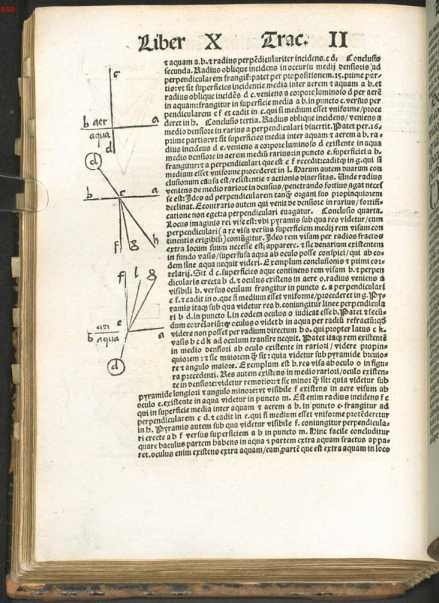 Liber X Trac. II
c
b aer a
aqua
d
d
b e a
f g h
f l g
b aer e a
aqua
d
t aquam a.b. t radius perpendiculariter incidens.c d. Conclusio
secunda. Radius oblique incidens in occursu medij densioris ad
perpendicularem frangit: patet per propositionem.15. prime par-
tis: vt sit superficies incidentie media inter aerem t aquam a b. et
radius oblique incidēs d e. veniens a corpore luminoso d per aerē
in aquam: frangitur in superficie media a b. in puncto e. versus per
pendicularem e f et cadit in e. qui si medium esset vniforme/proce
deret in h. Conclusio tertia. Radius oblique incidens/veniens a
medio densiore in rarius a perpendiculari divertit. Patet per.16.
prime partis: vt sit superficies media inter aquam t aerem a b. ra-
dius incidens d e. veniens a corpore luminoso d existente in aqua
medio densiore in aerem medium rarius: in puncto e. superficiei a b.
frangitur t a perpendiculari que est e f recedit: caditq in g. qui si
medium esset vniforme procederet in l. Harum autem duarum con-
clusionum causa est/resistentie t actionis diversitas. Unde radius
veniens de medio rariore in densius/penetrando fortius agat neces
se est: Ideo ad perpendicularem tanq̄ origini sue propinquiorem
declinat. E contrario autem qui venit de densiore in rarius/fortifi-
catione non egetia perpendiculari evagatur. Conclusio quarta.
Locus imaginis rei vise est: vbi pyramis sub qua res videtur/cum
perpendiculari/a re visa versus superficiem medij rem visam con
tinentis erigibili/coniungitur. Ideo rem visam per radios fractos
extra locum suum necesse est apparere. t sic denarium existentem
in fundo vasis/superfusa aqua ab oculo posse conspici/qui ab eo-
dem sine aqua nequit videri. Exemplum conclusionis t primi cor-
relarij: Sit d c. superficies aque continens rem visam b. t perpen
dicularis erecta b d. t oculus existens in aere o. radius veniens a
visibili b. versus oculum frangitur in puncto c. a perpendiculari
c f. t cadit in o. que si medium esset vniforme/procederet in g. Py-
ramis itaq sub qua videtur res b. coniungitur linee perpendicula
ri b d. in puncto l. in eodem oculus o iudicat esse b. Patet t secun-
dum correlarium: qz oculus o videt b in aqua per radiū refractū: qz
videre non posset per radium directum b o. qui propter latus c k.
vasis b c d k ad oculum transire nequit. Patet itaq rem existentē
in medio densiori ab oculo existente in rariori/videre propin-
quiorem: t se maiorem q̄ sit: quia videtur sub pyramide breuio
re t angulo maiore. Exemplum est b. res visa ab oculo o in figu-
ra precedenti. Res autem existens in medio rariori/oculo existen-
te in densiore: videtur remotior: t se minor q̄ sit: quia videtur sub
pyramide longiori t angulo minore: vt visibile f existens in aere visum ab
oculo c. existente in aqua videtur in puncto m. Est enim radius incidens f e
qui in superficie media inter aquam t aerem a b. in puncto e frangitur ad
perpendicularem c d. t cadit in c. qui si medium esset vniforme procederetur
in h. Pyramis autem sub qua videtur visibile f. coniungitur perpendicula-
ri erecte ab f versus superficiem a b in puncto m. Hinc facile concluditur
quare baculus partem habens in aqua t partem extra aquam fractus appa-
ret. oculus enim existens extra aquam/eam partē que est extra aquam in loco